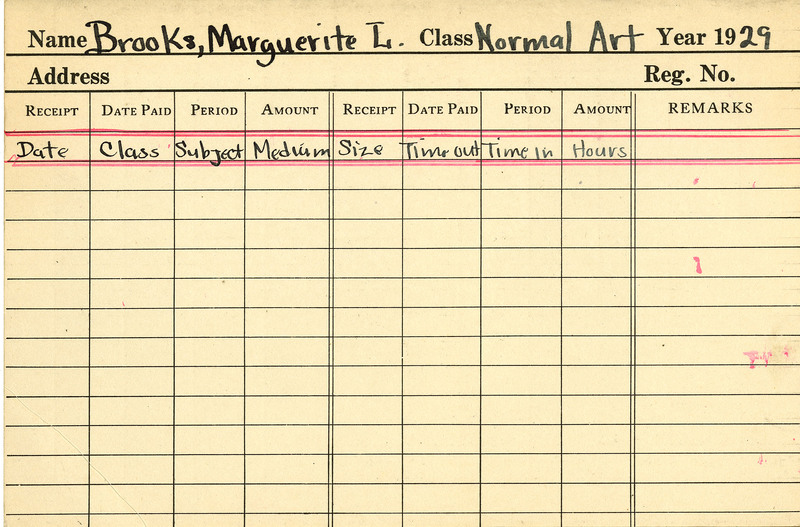 Name Brooks, Marguerite L. Class Normal Art Year 1929
Address Reg. No.
RECEIPT DATE PAID PERIOD AMOUNT RECEIPT DATE PAID PERIOD AMOUNT REMARKS
Date Class Subject Medium Size Time out Time in Hours